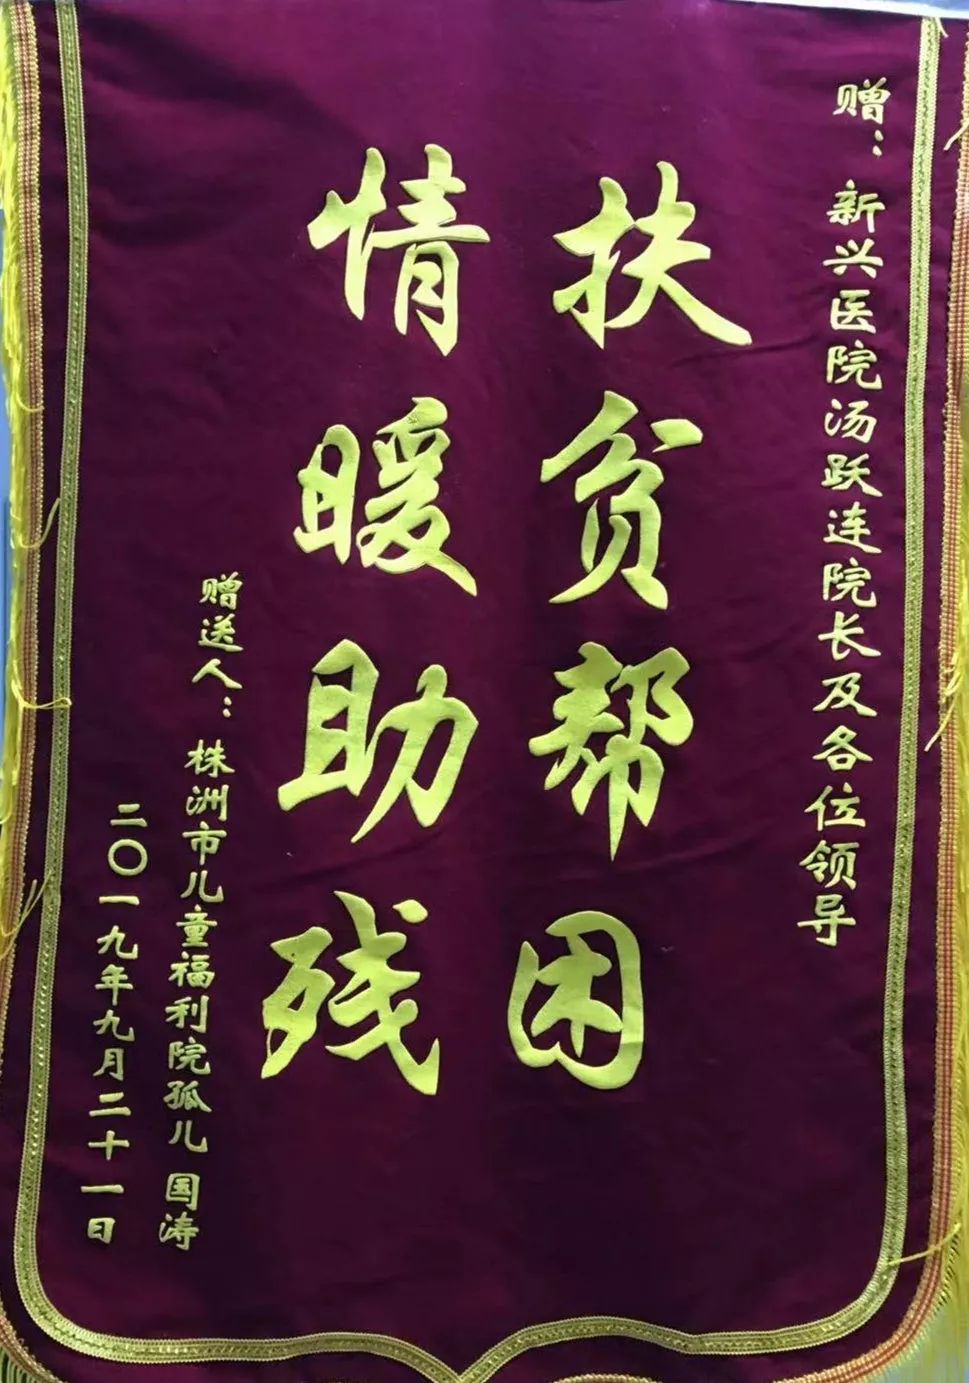 赠：新兴医院汤跃连院长及各位领导
扶贫帮困
情暖助残
赠送人：株洲市儿童福利院孤儿 国涛
二〇一九年九月二十一日